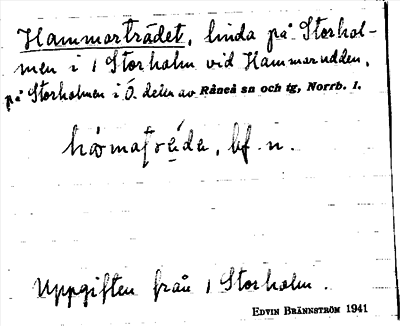 Hammarträdet, linda på Storhol-
men i 1 Storholm vid Hammarudden,
på Storholmen i Ö. delen av Råneå sn och tg, Norrb. l.
bf. n.
Uppgiften från 1 Storholm.
EDVIN BRÄNNSTRÖM 1941